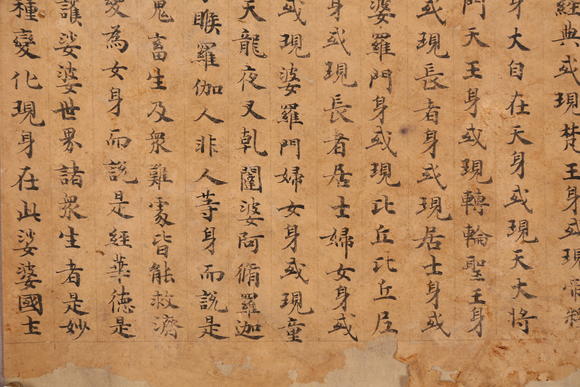 經典或現梵王身或現帝釋
身大自在天身或現天大將
門天王身或現轉輪聖王身
或現長者身或現居士身或
婆羅門身或現比丘比丘尼
身或現長者居士婦女身或
或現婆羅門婦女身或現童
天龍夜叉乹闥婆阿脩羅迦
睺羅伽人非人等身而說是
鬼畜生及衆難處皆能救濟
變為女身而說是經華德是
護娑婆世界諸衆生者是妙
種變化現身在此娑婆國土